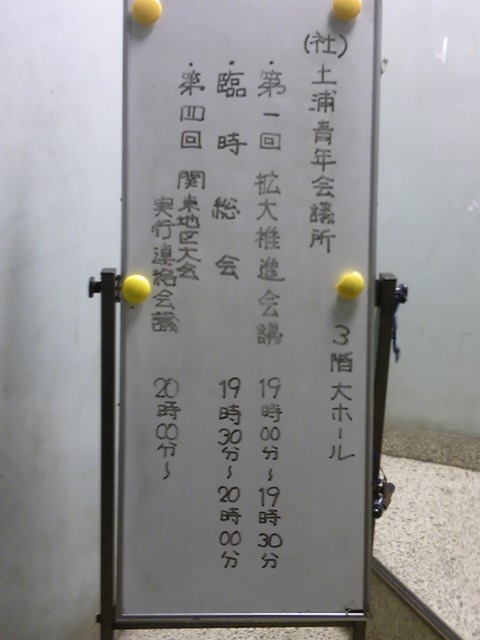 (社)土浦青年会議所 3階大ホール
・第一回 拡大推進会議 19時00分~19時30分
・臨時総会 19時30分~20時00分
・第四回 関東地区大会
実行連絡会議 20時00分~